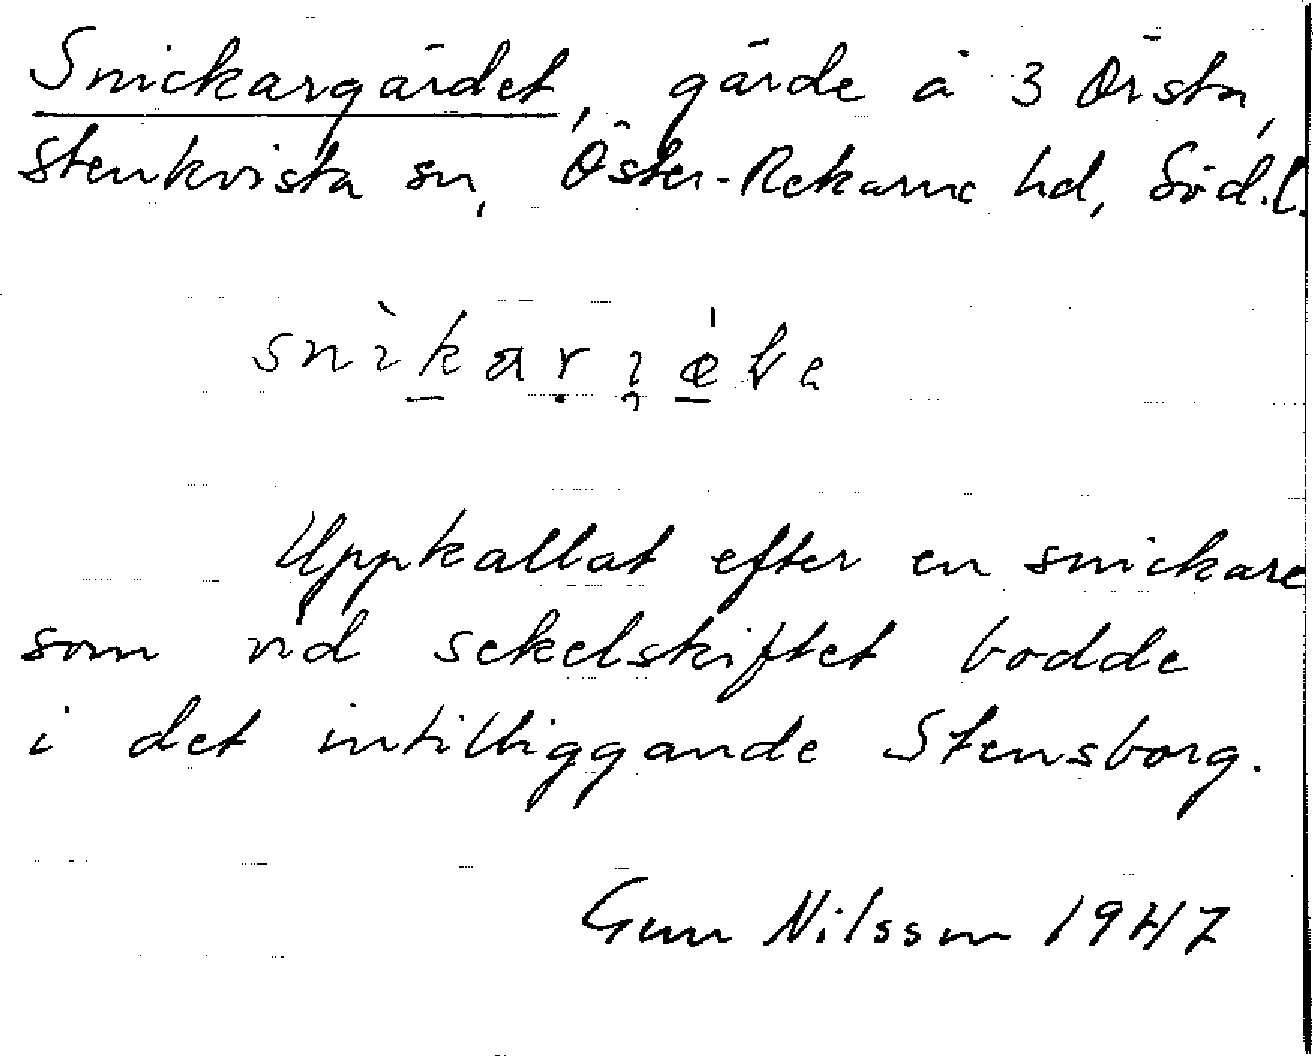 Snickargärdet, gärde å 3 Örsta,
Stenkvista sn, Öster-Rekarne hd, Söd.l.
Uppkallat efter en snickare
som vid sekelskiftet bodde
i det intilliggande Stensborg.
Gun Nilsson 1947